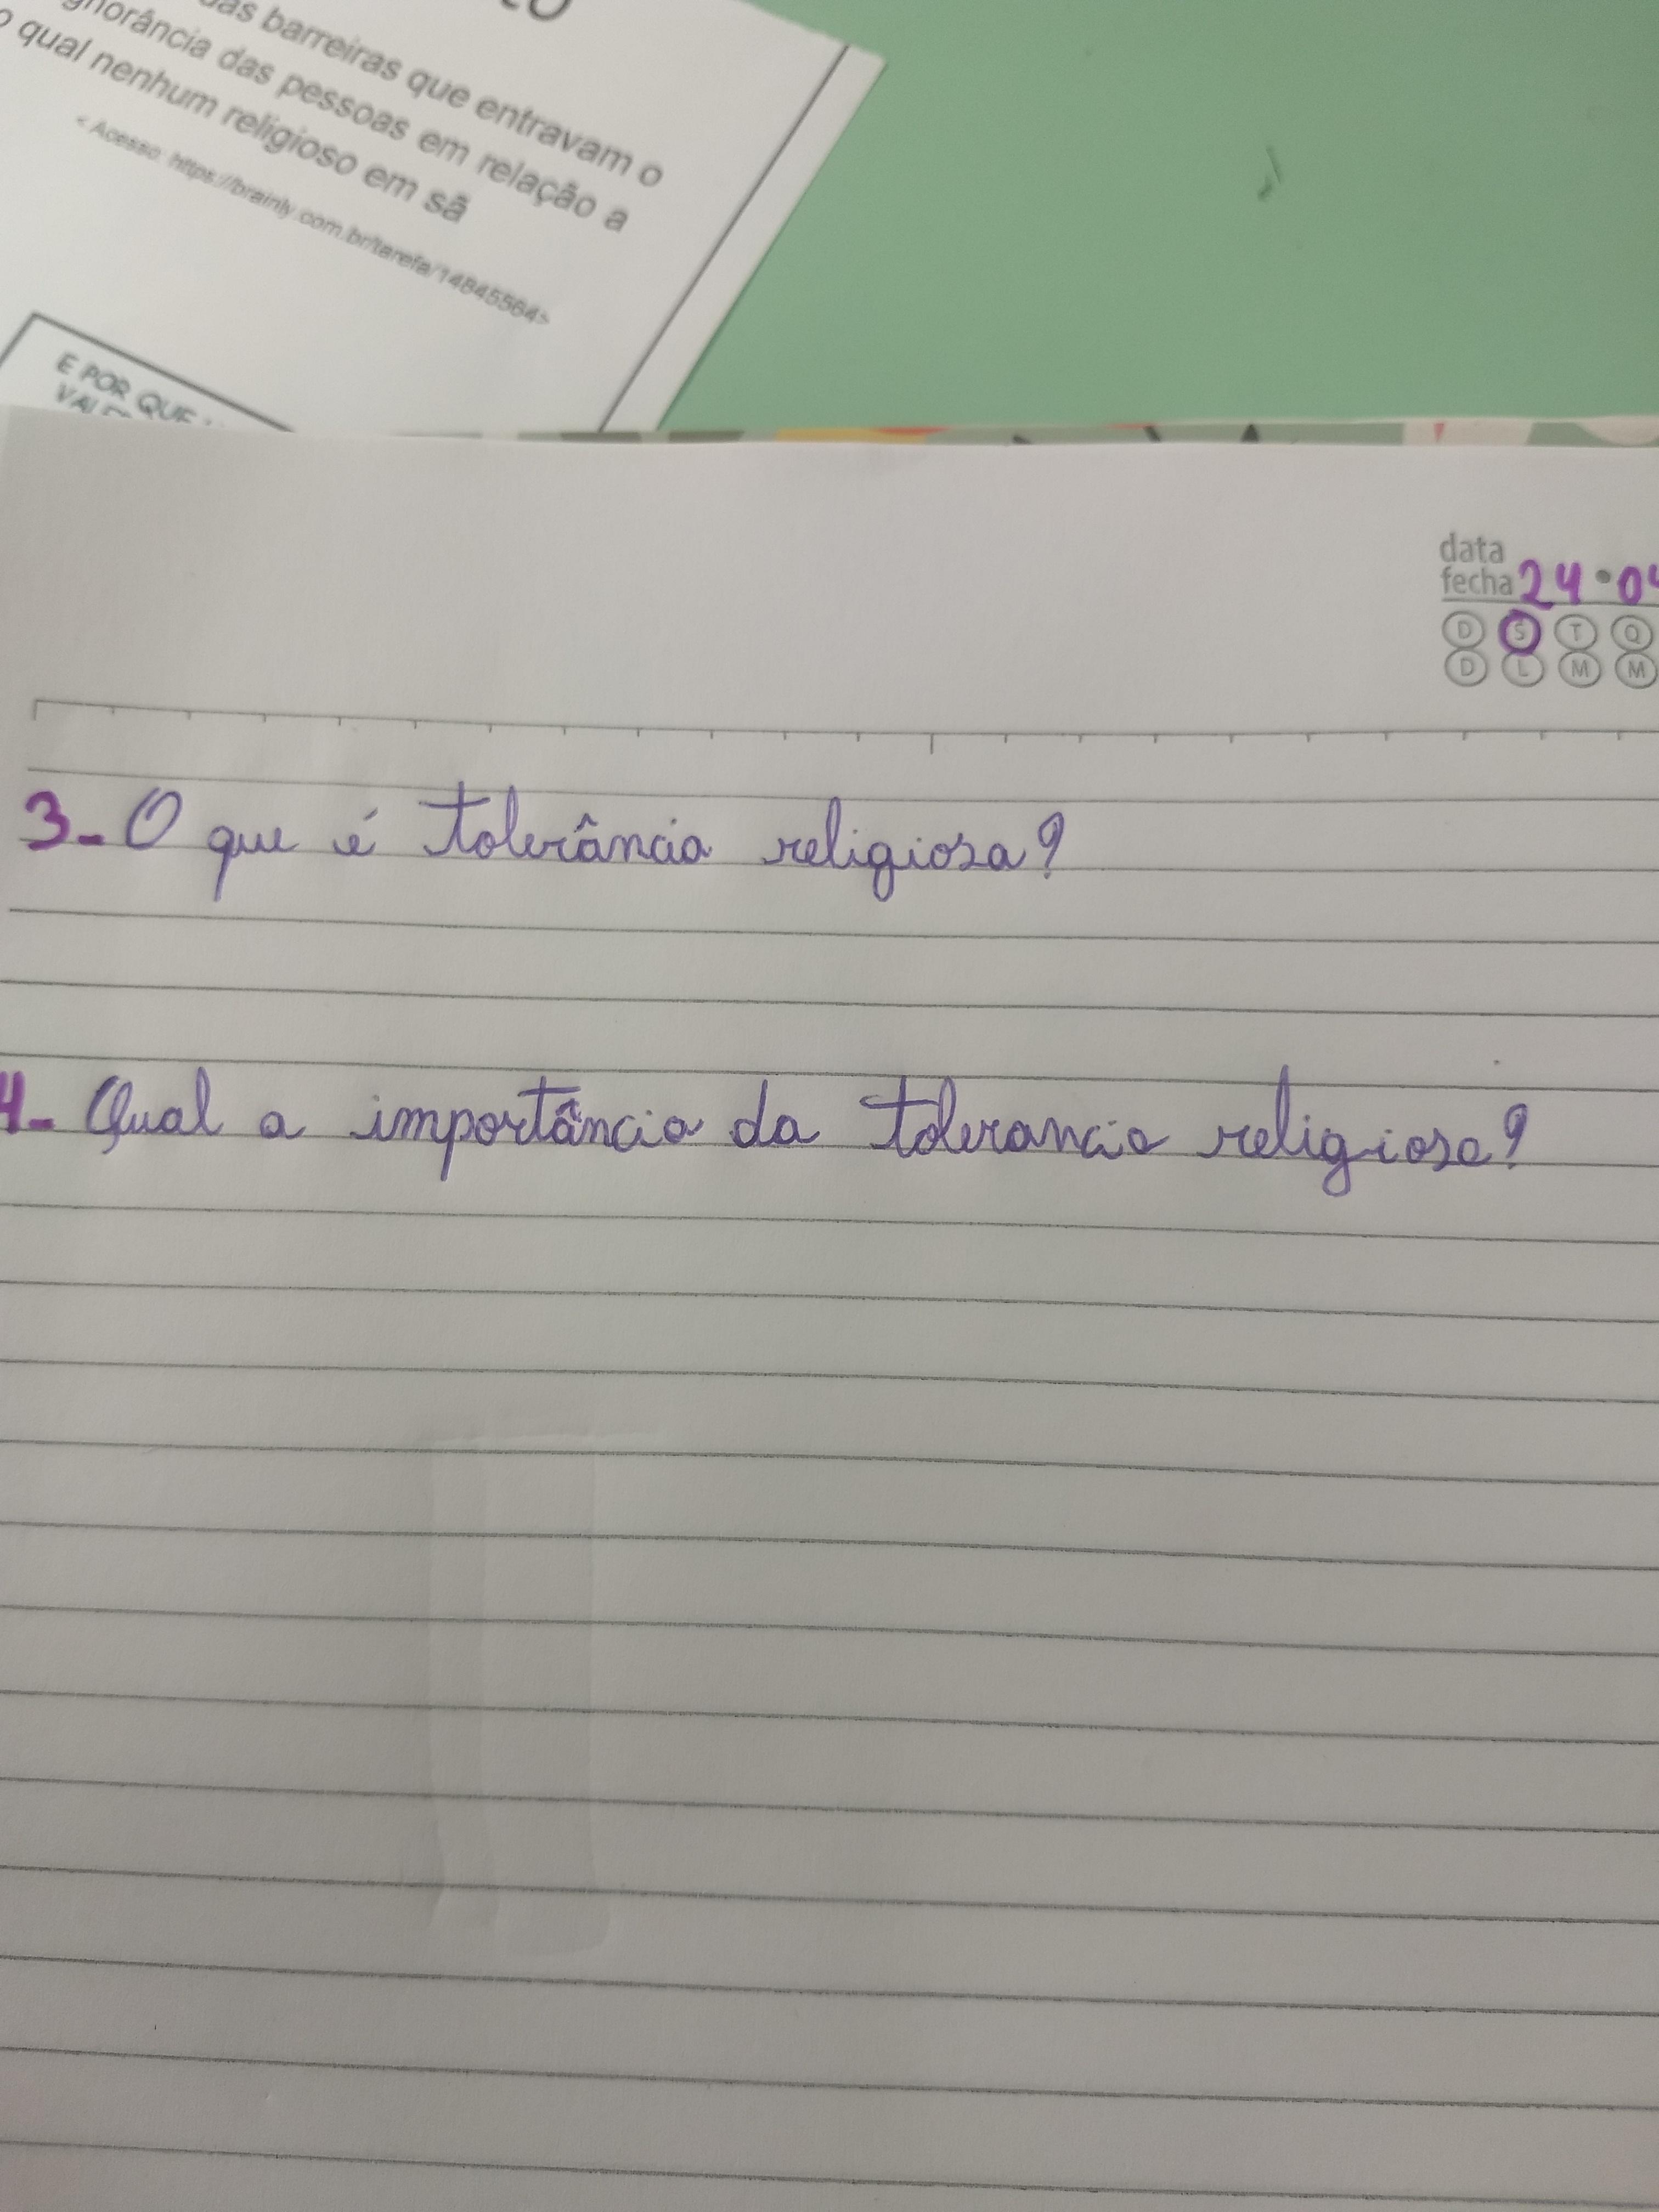 das barreiras que entravam o
ignorância das pessoas em relação a
o qual nenhum religioso em sã
< Acesso: https://brainly.com.br/tarefa/14845564>
E POR QUE
data
fecha 24 • 04
D S T Q
D L M M
3- O que é tolerância religiosa?
4- Qual a importância da tolerancia religiosa?